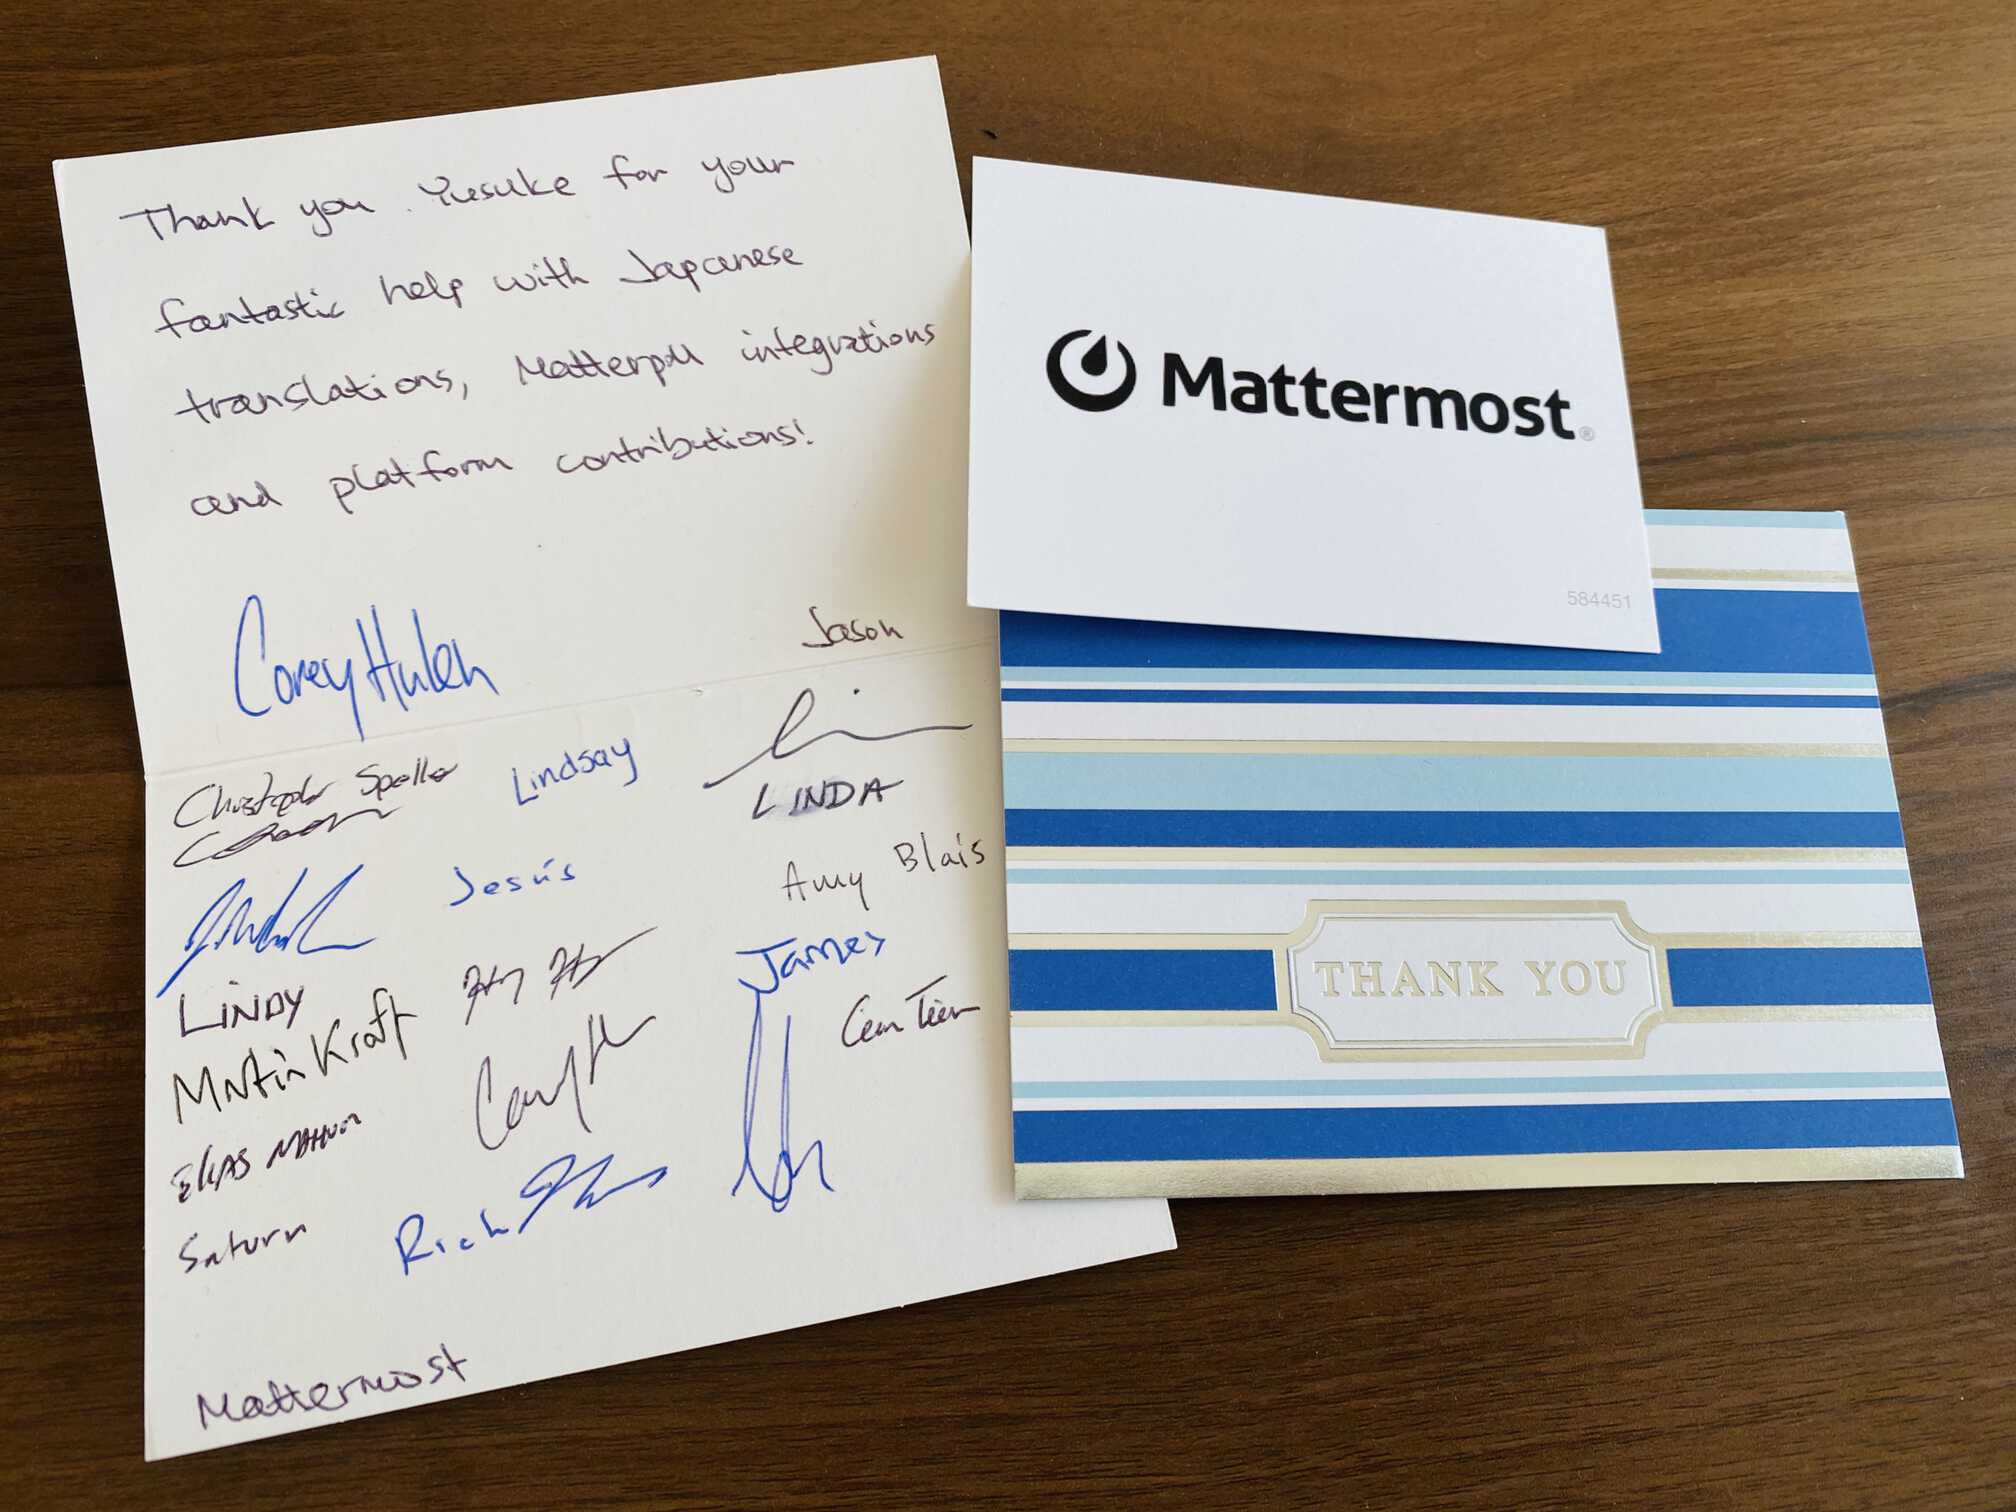 Thank you Yusuke for your
fantastic help with Japanese
translations, Matterpoll integrations
and platform contributions!
Corey Hulen
Jason
Christopher Speller
Lindsay
LINDA
Jesús
Amy Blais
LINDY
James
Martin Kraft
ELIAS NAHUM
Saturn
Rich
Mattermost
Mattermost®
584451
THANK YOU